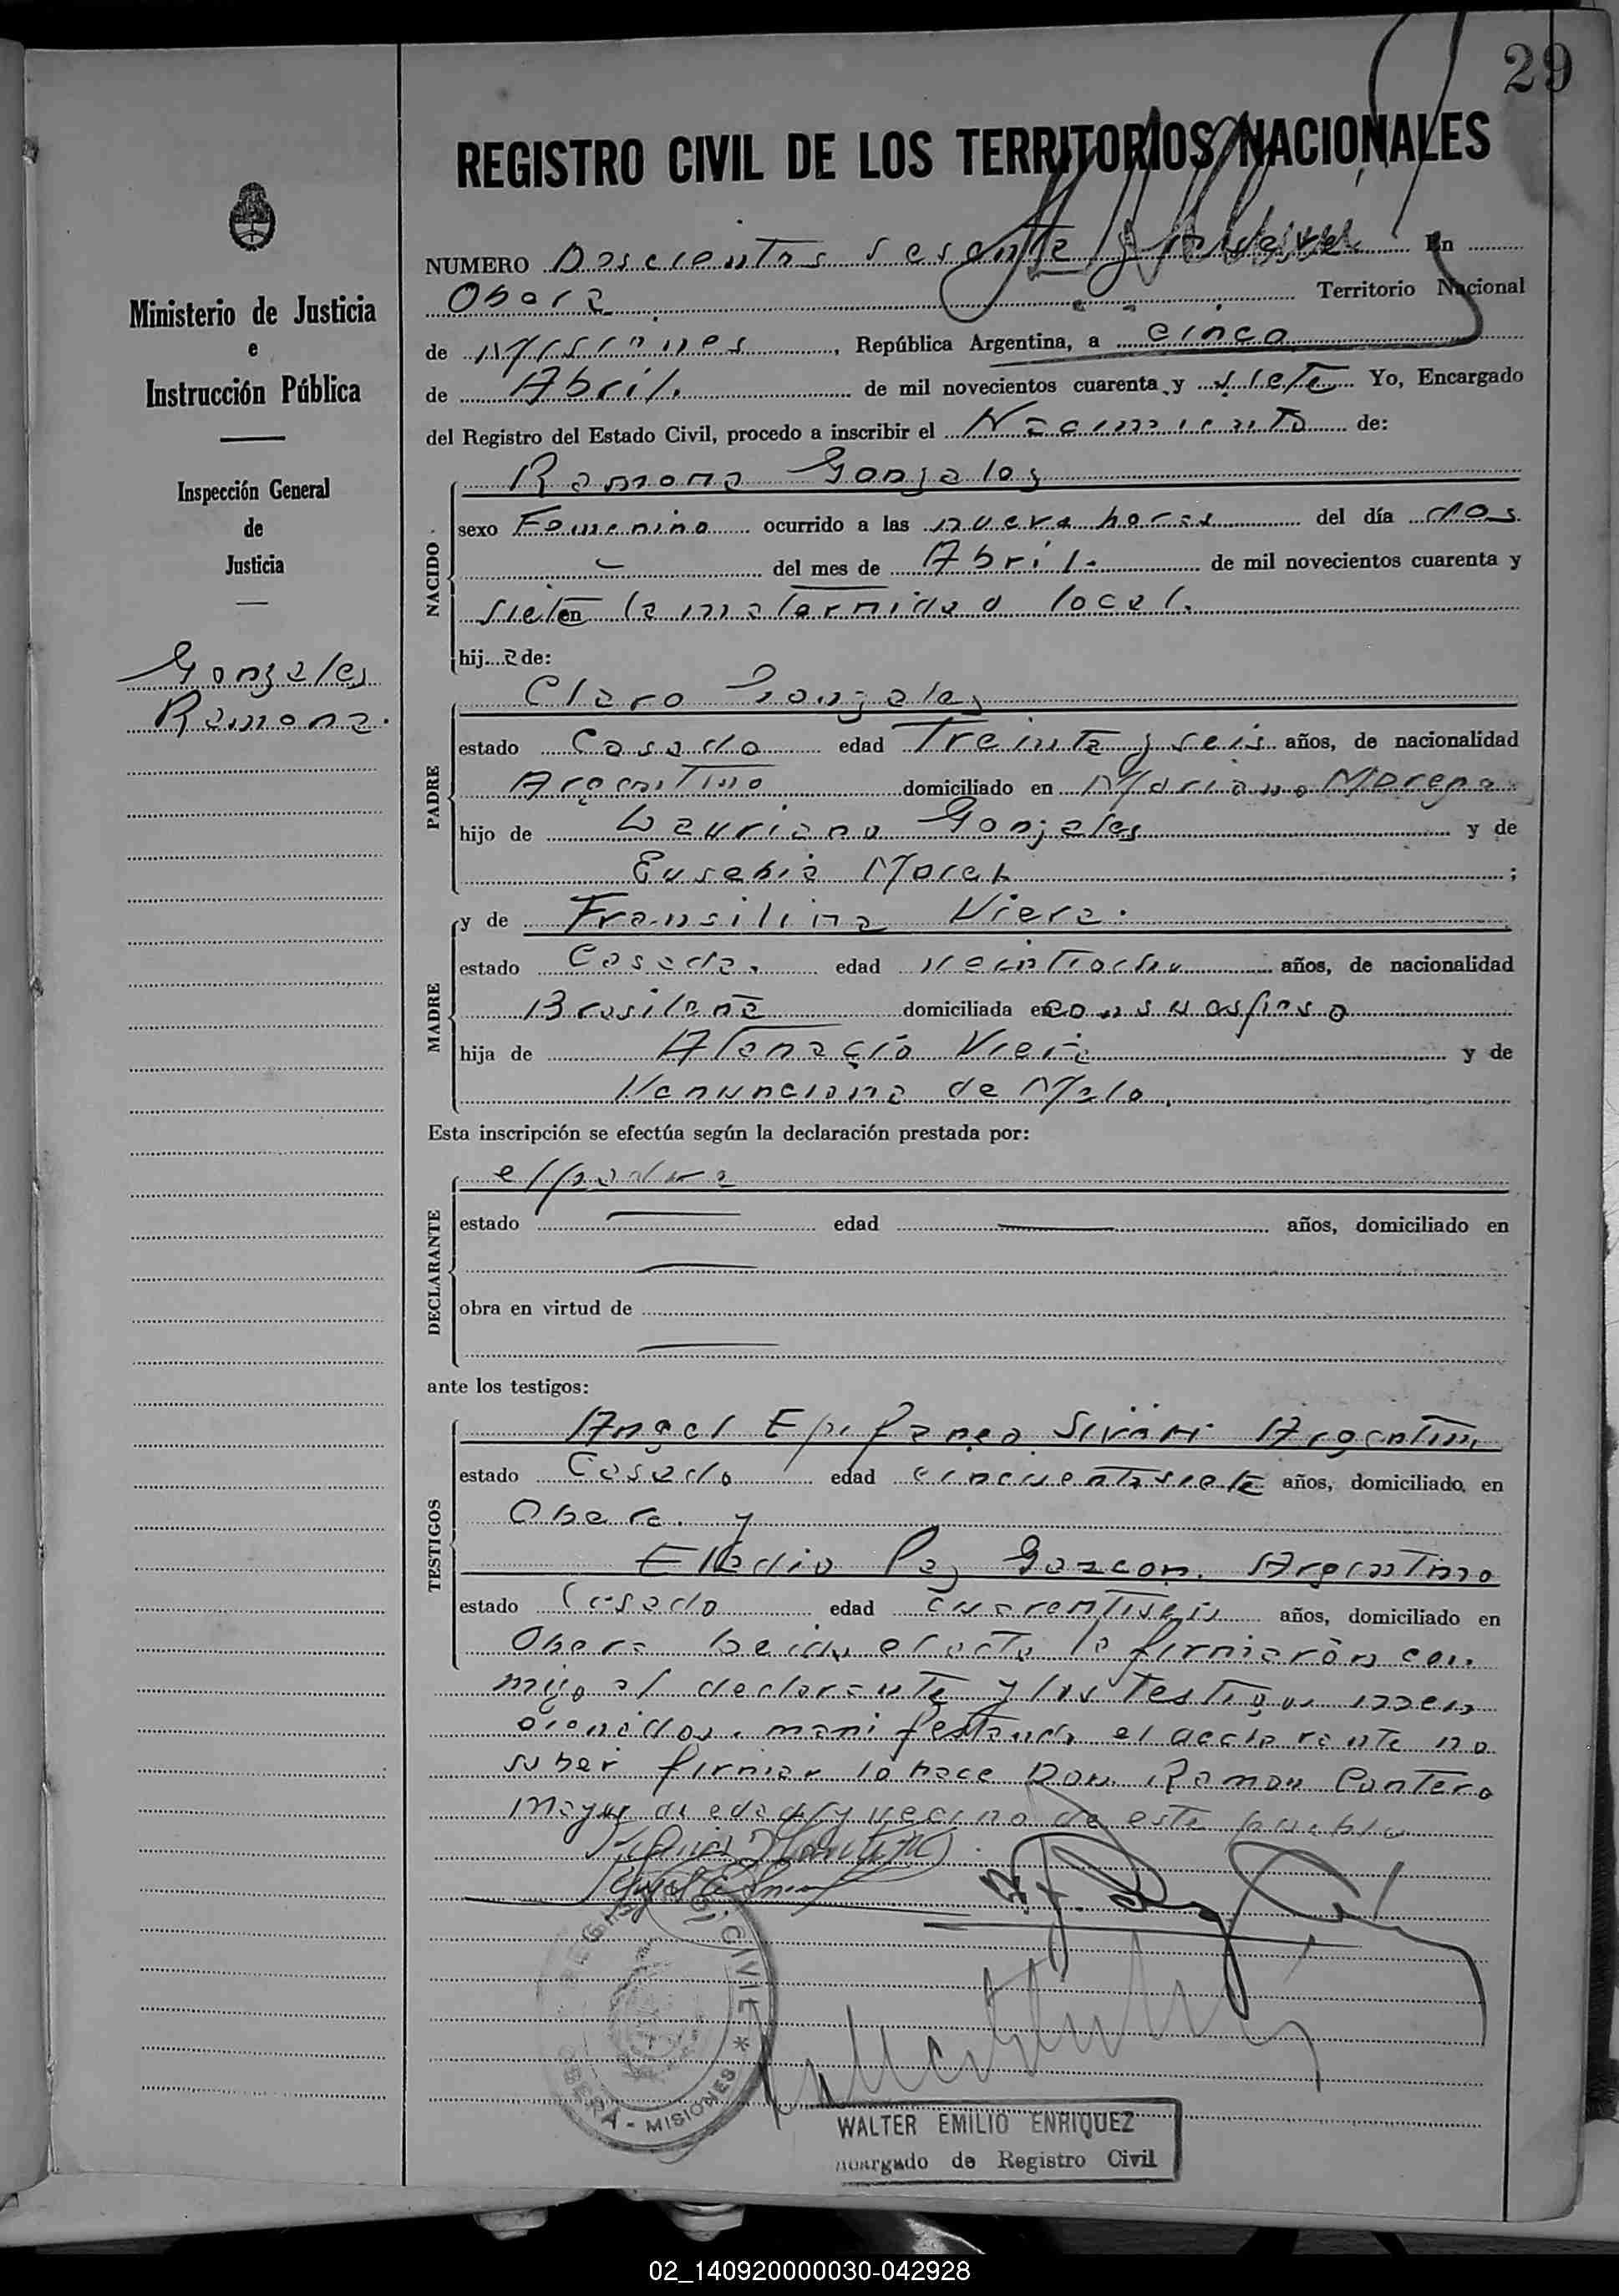 29
REGISTRO CIVIL DE LOS TERRITORIOS NACIONALES
NUMERO Doscientos sesenta y nueve En
Obera Territorio Nacional
de Misiones, República Argentina, a cinco
de Abril. de mil novecientos cuarenta y siete Yo, Encargado
del Registro del Estado Civil, procedo a inscribir el Nacimiento de:
Ministerio de Justicia
e
Instrucción Pública
Inspección General
de
Justicia
Gonzales
Ramona.
NACIDO
Ramona Gonzales
sexo Femenino ocurrido a las nueve horas del día dos
del mes de Abril. de mil novecientos cuarenta y
siete en la maternidad local.
hij a de:
PADRE
Claro Gonzales
estado Casado edad Treinta y seis años, de nacionalidad
Argentino domiciliado en Mariano Moreno
hijo de Lauriano Gonzales y de
Eusebia ;
MADRE
y de Fransilina Viera.
estado Casada. edad veintiocho años, de nacionalidad
Brasileña domiciliada en con su esposo
hija de Atanacio Viera y de
de Melo.
Esta inscripción se efectúa según la declaración prestada por:
DECLARANTE
el padre
estado edad años, domiciliado en
obra en virtud de
ante los testigos:
TESTIGOS
Angel Epifaneo Argentino
estado Casado edad cincuentisiete años, domiciliado en
Obera. y
Eladio Paz Argentino
estado Casado edad cuarentiseis años, domiciliado en
Obera leida el acta la firmaron con
migo el declarante y los Testigos men
cionados. manifestando el declarante no
saber firmar lo hace Don Ramon
mayor de edad y vecino de este pueblo
REGISTRO CIVIL * OBERÁ - MISIONES
WALTER EMILIO ENRIQUEZ
Encargado de Registro Civil
02_140920000030-042928